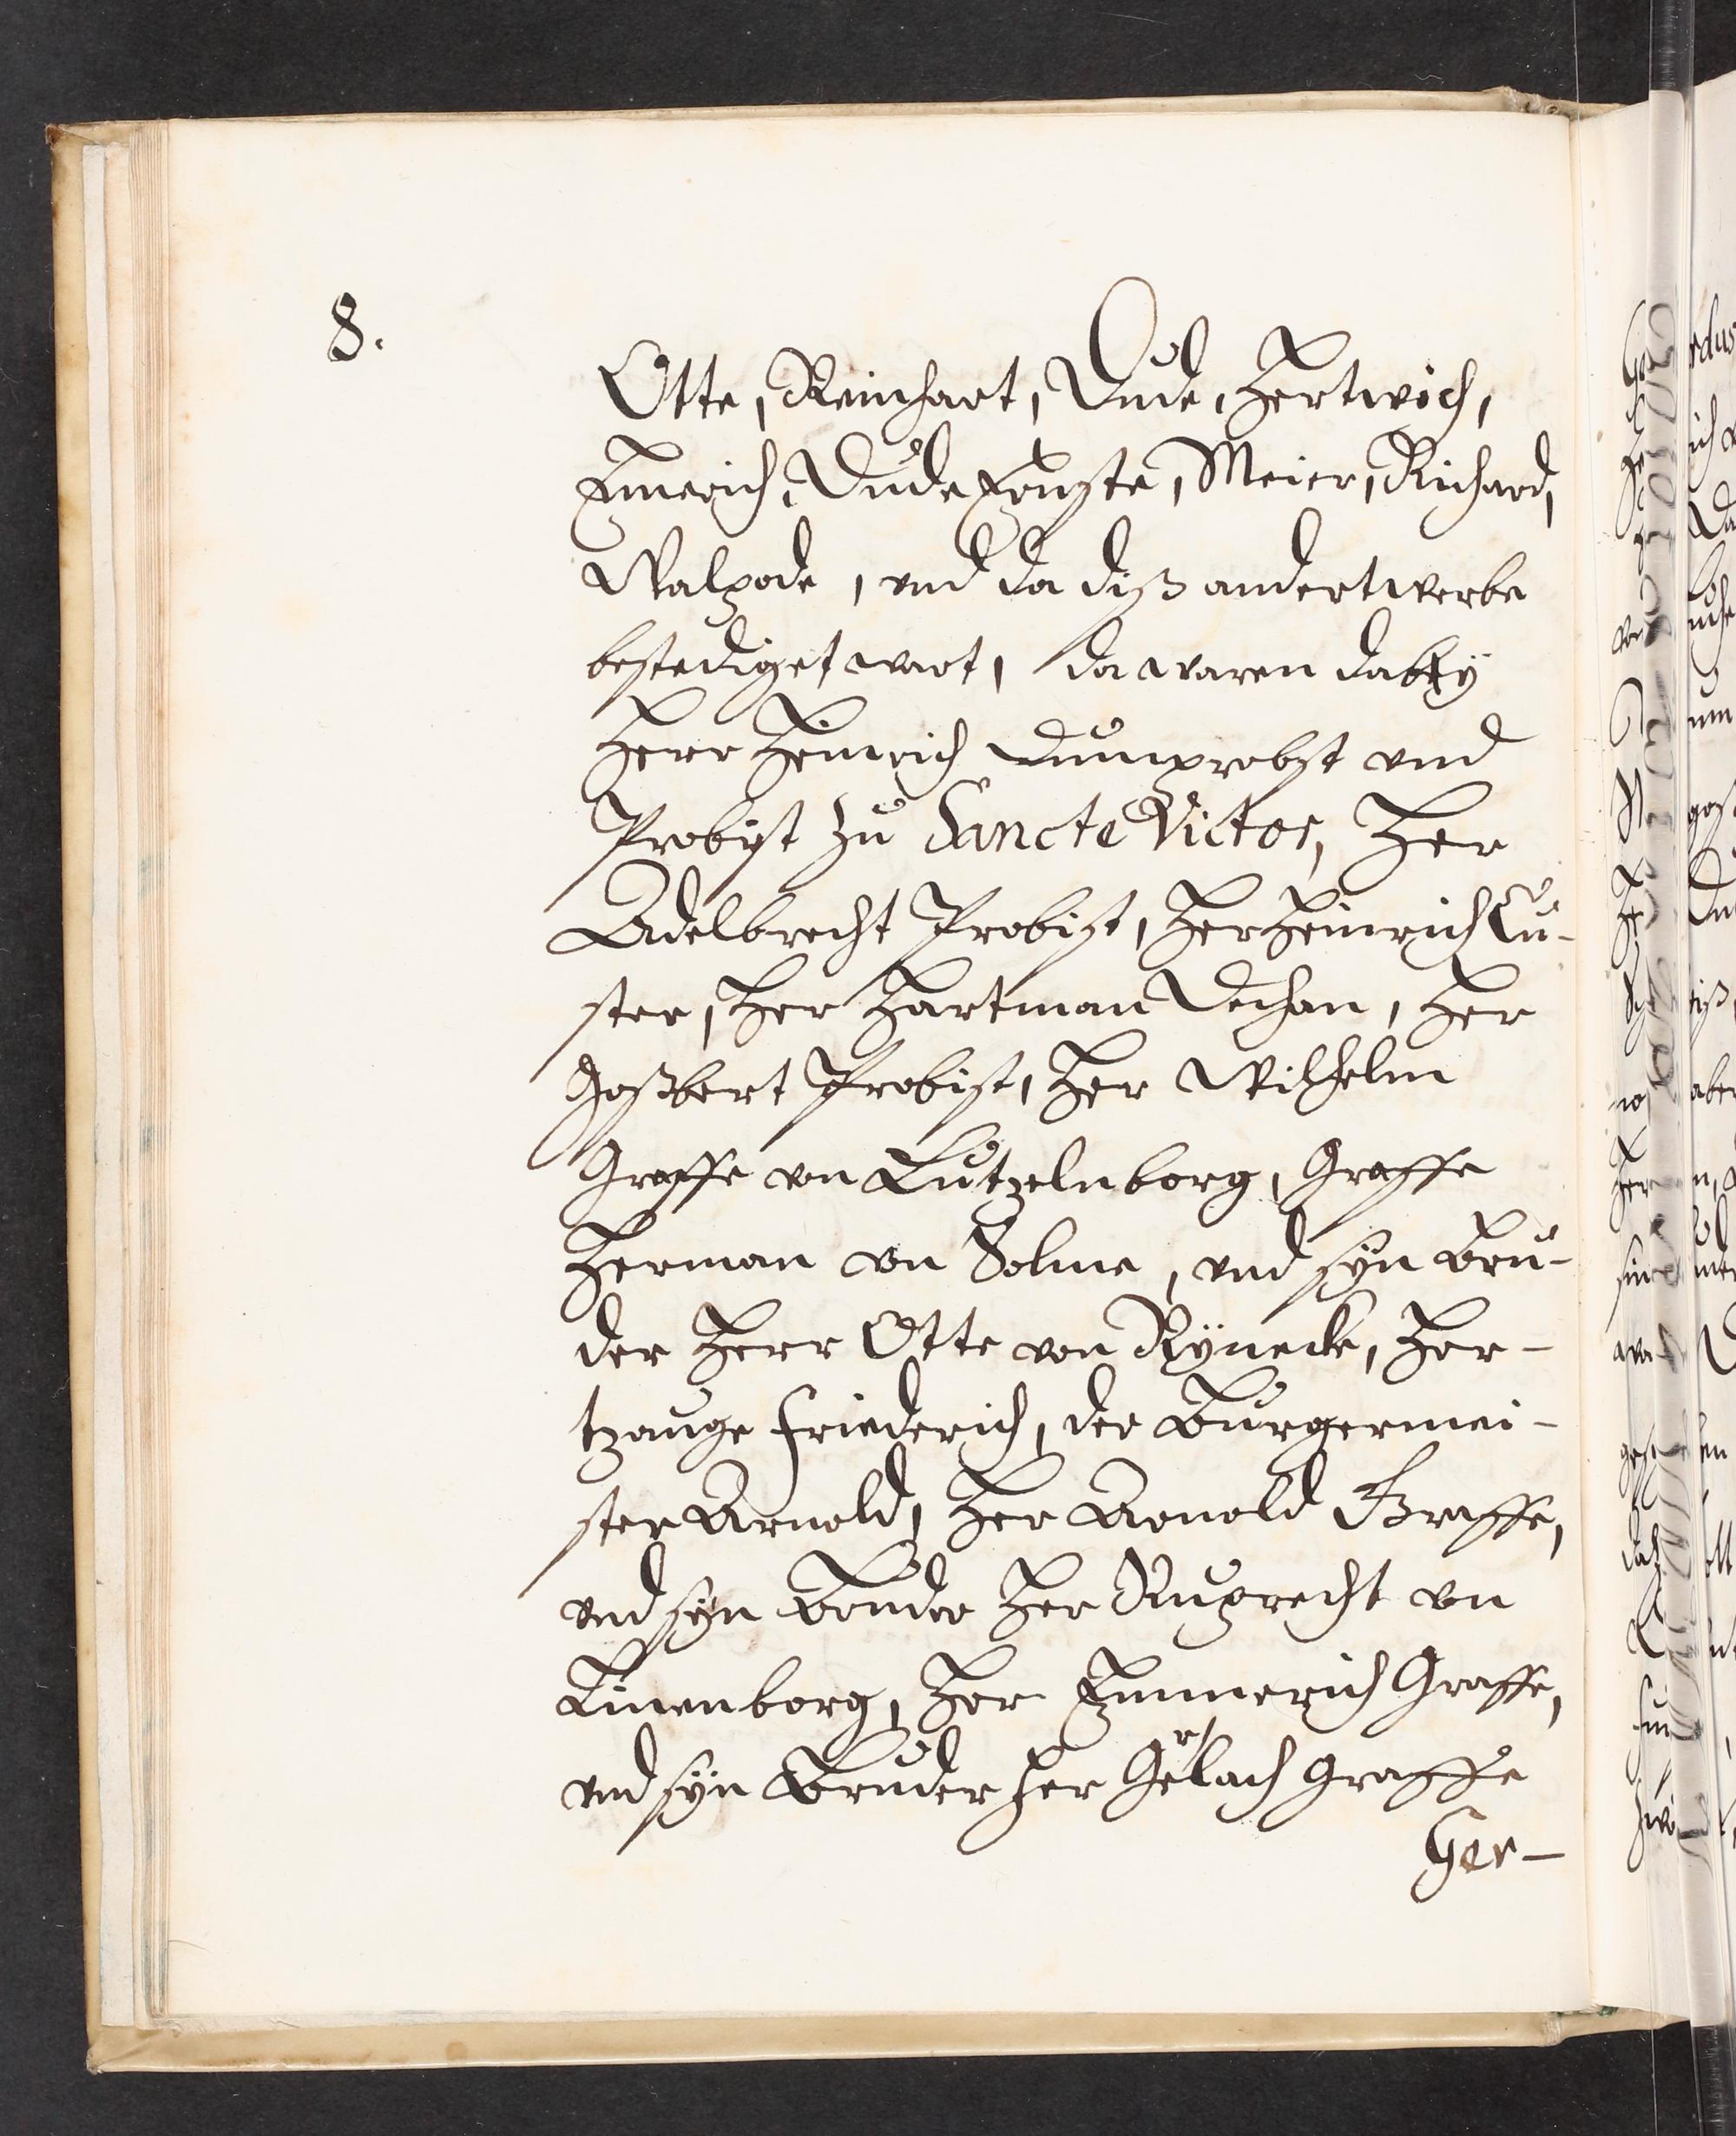 8.
Otte, Reinhart, Dude, Hertwich,
Emerich, Dude Ernste, Meier, Richard,
Walpode, und da diß andertwerbe
bestediget wart, da waren dabey
Herr Heinrich Dumprobst und
Probist zu Sancte Victor, Her
Adelbrecht Probist, Her Heinrich Cu-
ster, Her Hartman Dechan, Her
Goßbert Probist, Her Wilhelm
Graffe von Lutzelnborg, Graffe
Herman von Solme, und syn Bru-
der Herr Otte von Rÿnecke, Her-
tzauge Friederich, der Burgermei-
ster Arnold, Her Arnold Graffe,
und syn Bruder Her Ruprecht von
Linenborg, Her Emmerich Graffe,
und syn Bruder Her Gerlach Graffe
Ger-